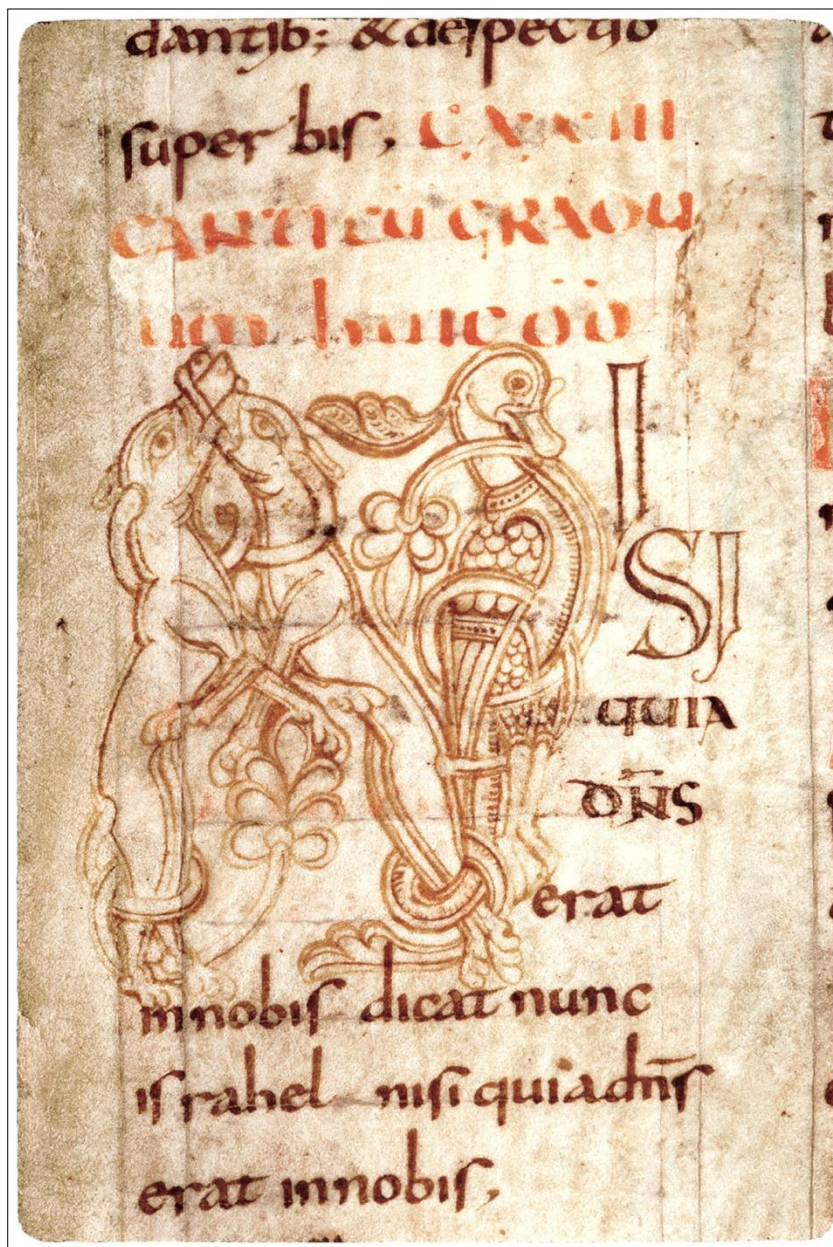 dantib; & despectio
super bis, CXXIII
CANTICŪ GRADUU
N I
SI
QUIA
DN̄S
erat
innobis dicat nunc
israhel nisi quia dn̄s
erat innobis,